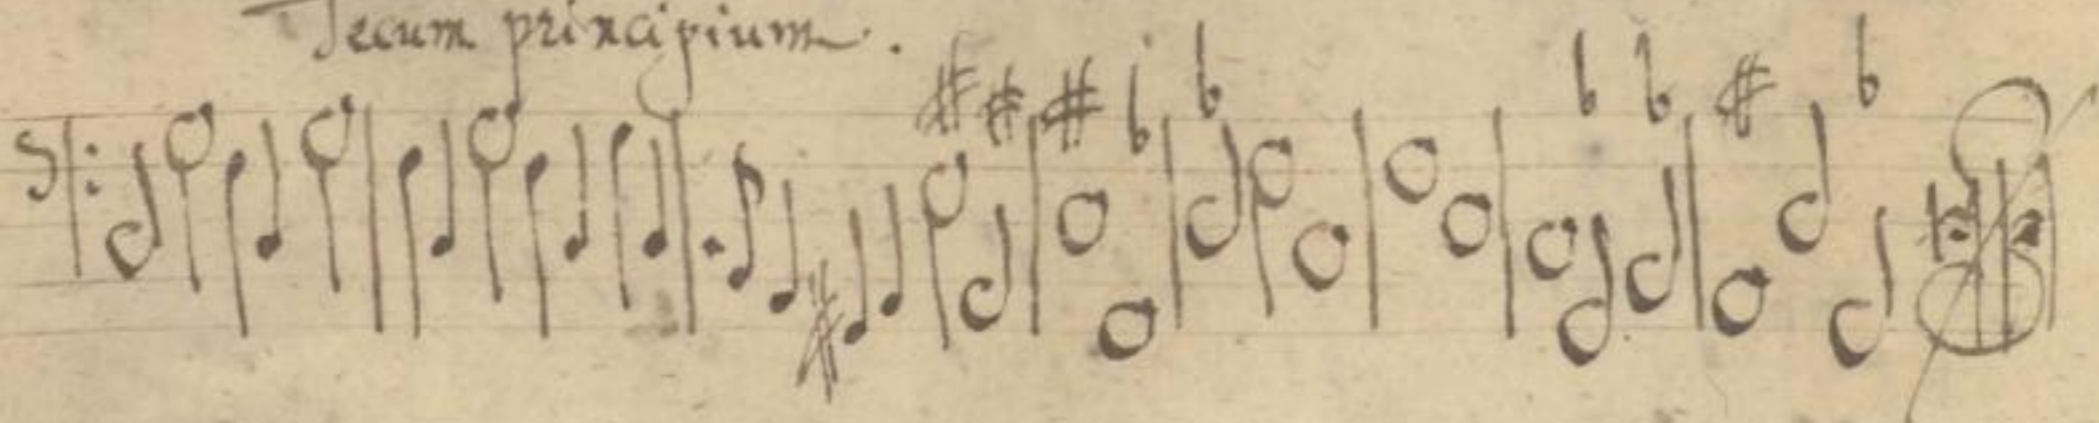 Tecum principium.